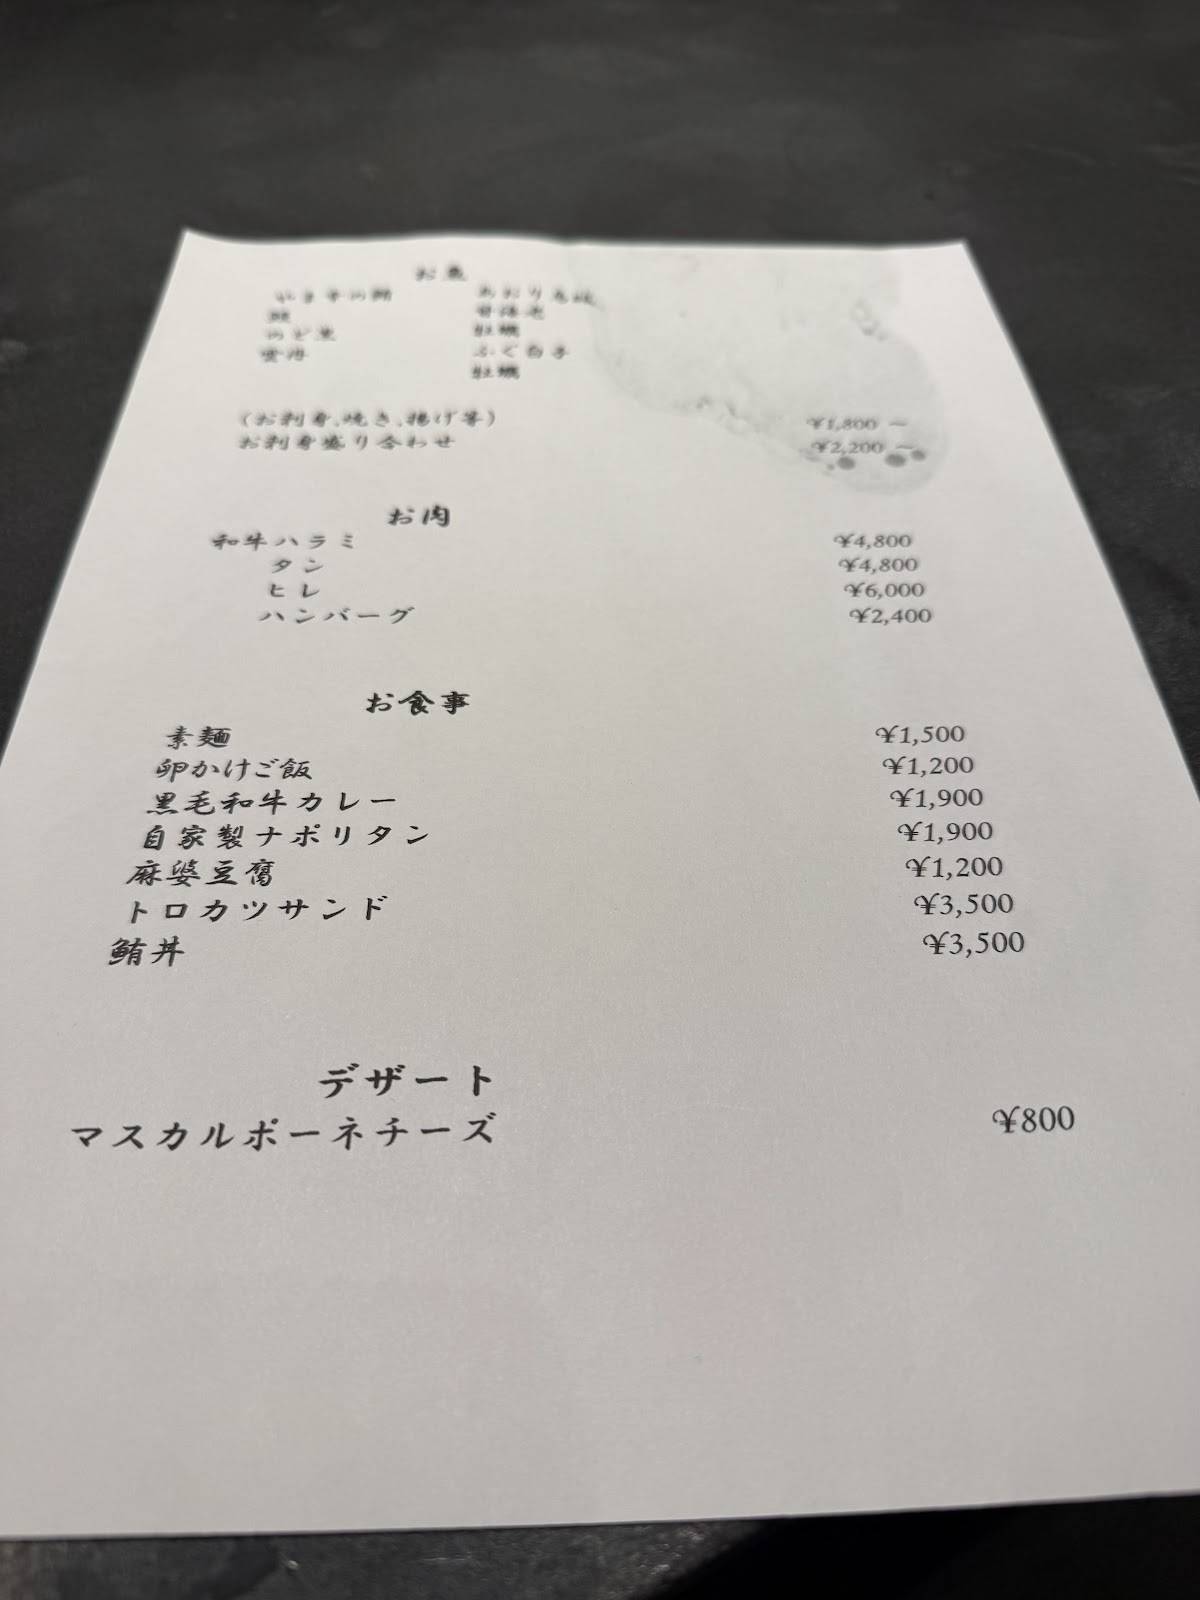 お魚
のど黒
牡蠣
ふぐ白子
牡蠣
(お刺身､焼き､揚げ等) ¥1,800 ～
お刺身盛り合わせ ¥2,200 ～
お肉
和牛ハラミ ¥4,800
タン ¥4,800
ヒレ ¥6,000
ハンバーグ ¥2,400
お食事
素麺 ¥1,500
卵かけご飯 ¥1,200
黒毛和牛カレー ¥1,900
自家製ナポリタン ¥1,900
麻婆豆腐 ¥1,200
トロカツサンド ¥3,500
鮪丼 ¥3,500
デザート
マスカルポーネチーズ ¥800